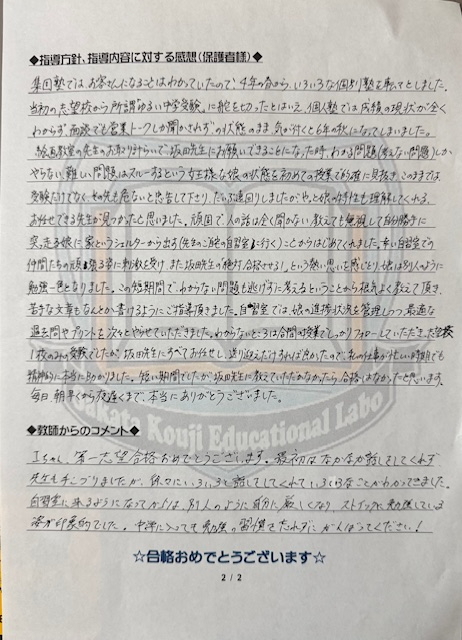 ◆指導方針、指導内容に対する感想（保護者様）◆
集団塾ではお客さんになることはわかっていたので、4年の春から、いろいろな個別塾を転々としました。
当初の志望校から所謂ゆるい中学受験、に舵を切ったとはいえ、個人塾では成績の現状が全く
わからず、面談でも営業トークしか聞かされずの状態のまま、気が付くと6年の秋になってしまいました。
絵画教室の先生のお取り計らいで、坂田先生にお願いできることになった時、わかる問題(考えない問題)しか
やらない、難しい問題はスルーするという女王様な娘の状態を初めての授業で的確に見抜き、このままでは
受験だけでなく、その先も危ないと忠告して下さり、だいぶ遠回りしましたが、やっと娘の特性も理解してくれる、
お任せできる先生が見つかったと思いました。頑固で、人の話は全く聞かない、教えても無視して自分勝手に
突っ走る娘に家というシェルターから出す(先生のご自宅の自習室に行く)ことからはじめてくれました。幸い自習室での
仲間たちの頑張る姿に刺激を受け、また坂田先生の「絶対、合格させる!」という熱い思いを感じとり、娘は別人のように
勉強一色となりました。この短期間で、わからない問題も逃げずに考えるということから根気よく教えて頂き、
苦手な文章もなんとか書けるようにご指導頂きました。自習室では、娘の進捗状況を管理しつつ、最適な
過去問やプリントを次々とやらせていただきました。わからないところは合間の授業でしっかりフォローしていただき、
1校のみの受験でしたが、坂田先生にすべてお任せし、送り迎えだけすれば良かったので、私の仕事が忙しい時期でも
精神的に本当に助かりました。短い期間でしたが、坂田先生に教えていただかなかったら、合格はなかったと思います。
毎日、朝早くから夜遅くまで、本当にありがとうございました。
Sakata Kouji Educational Labo
◆教師からのコメント◆
Iちゃん、第一志望合格おめでとうございます。最初はなかなか話をしてくれず
先生も手こずりましたが、徐々にいろいろと話をしてくれていろいろなことがわかってきました。
自習室に来るようになってからは、別人のように自分に厳しくなり、ストイックに勉強している
姿が印象的でした。中学に入っても勉強の習慣を忘れずにがんばってください!
☆合格おめでとうございます☆
2 / 2